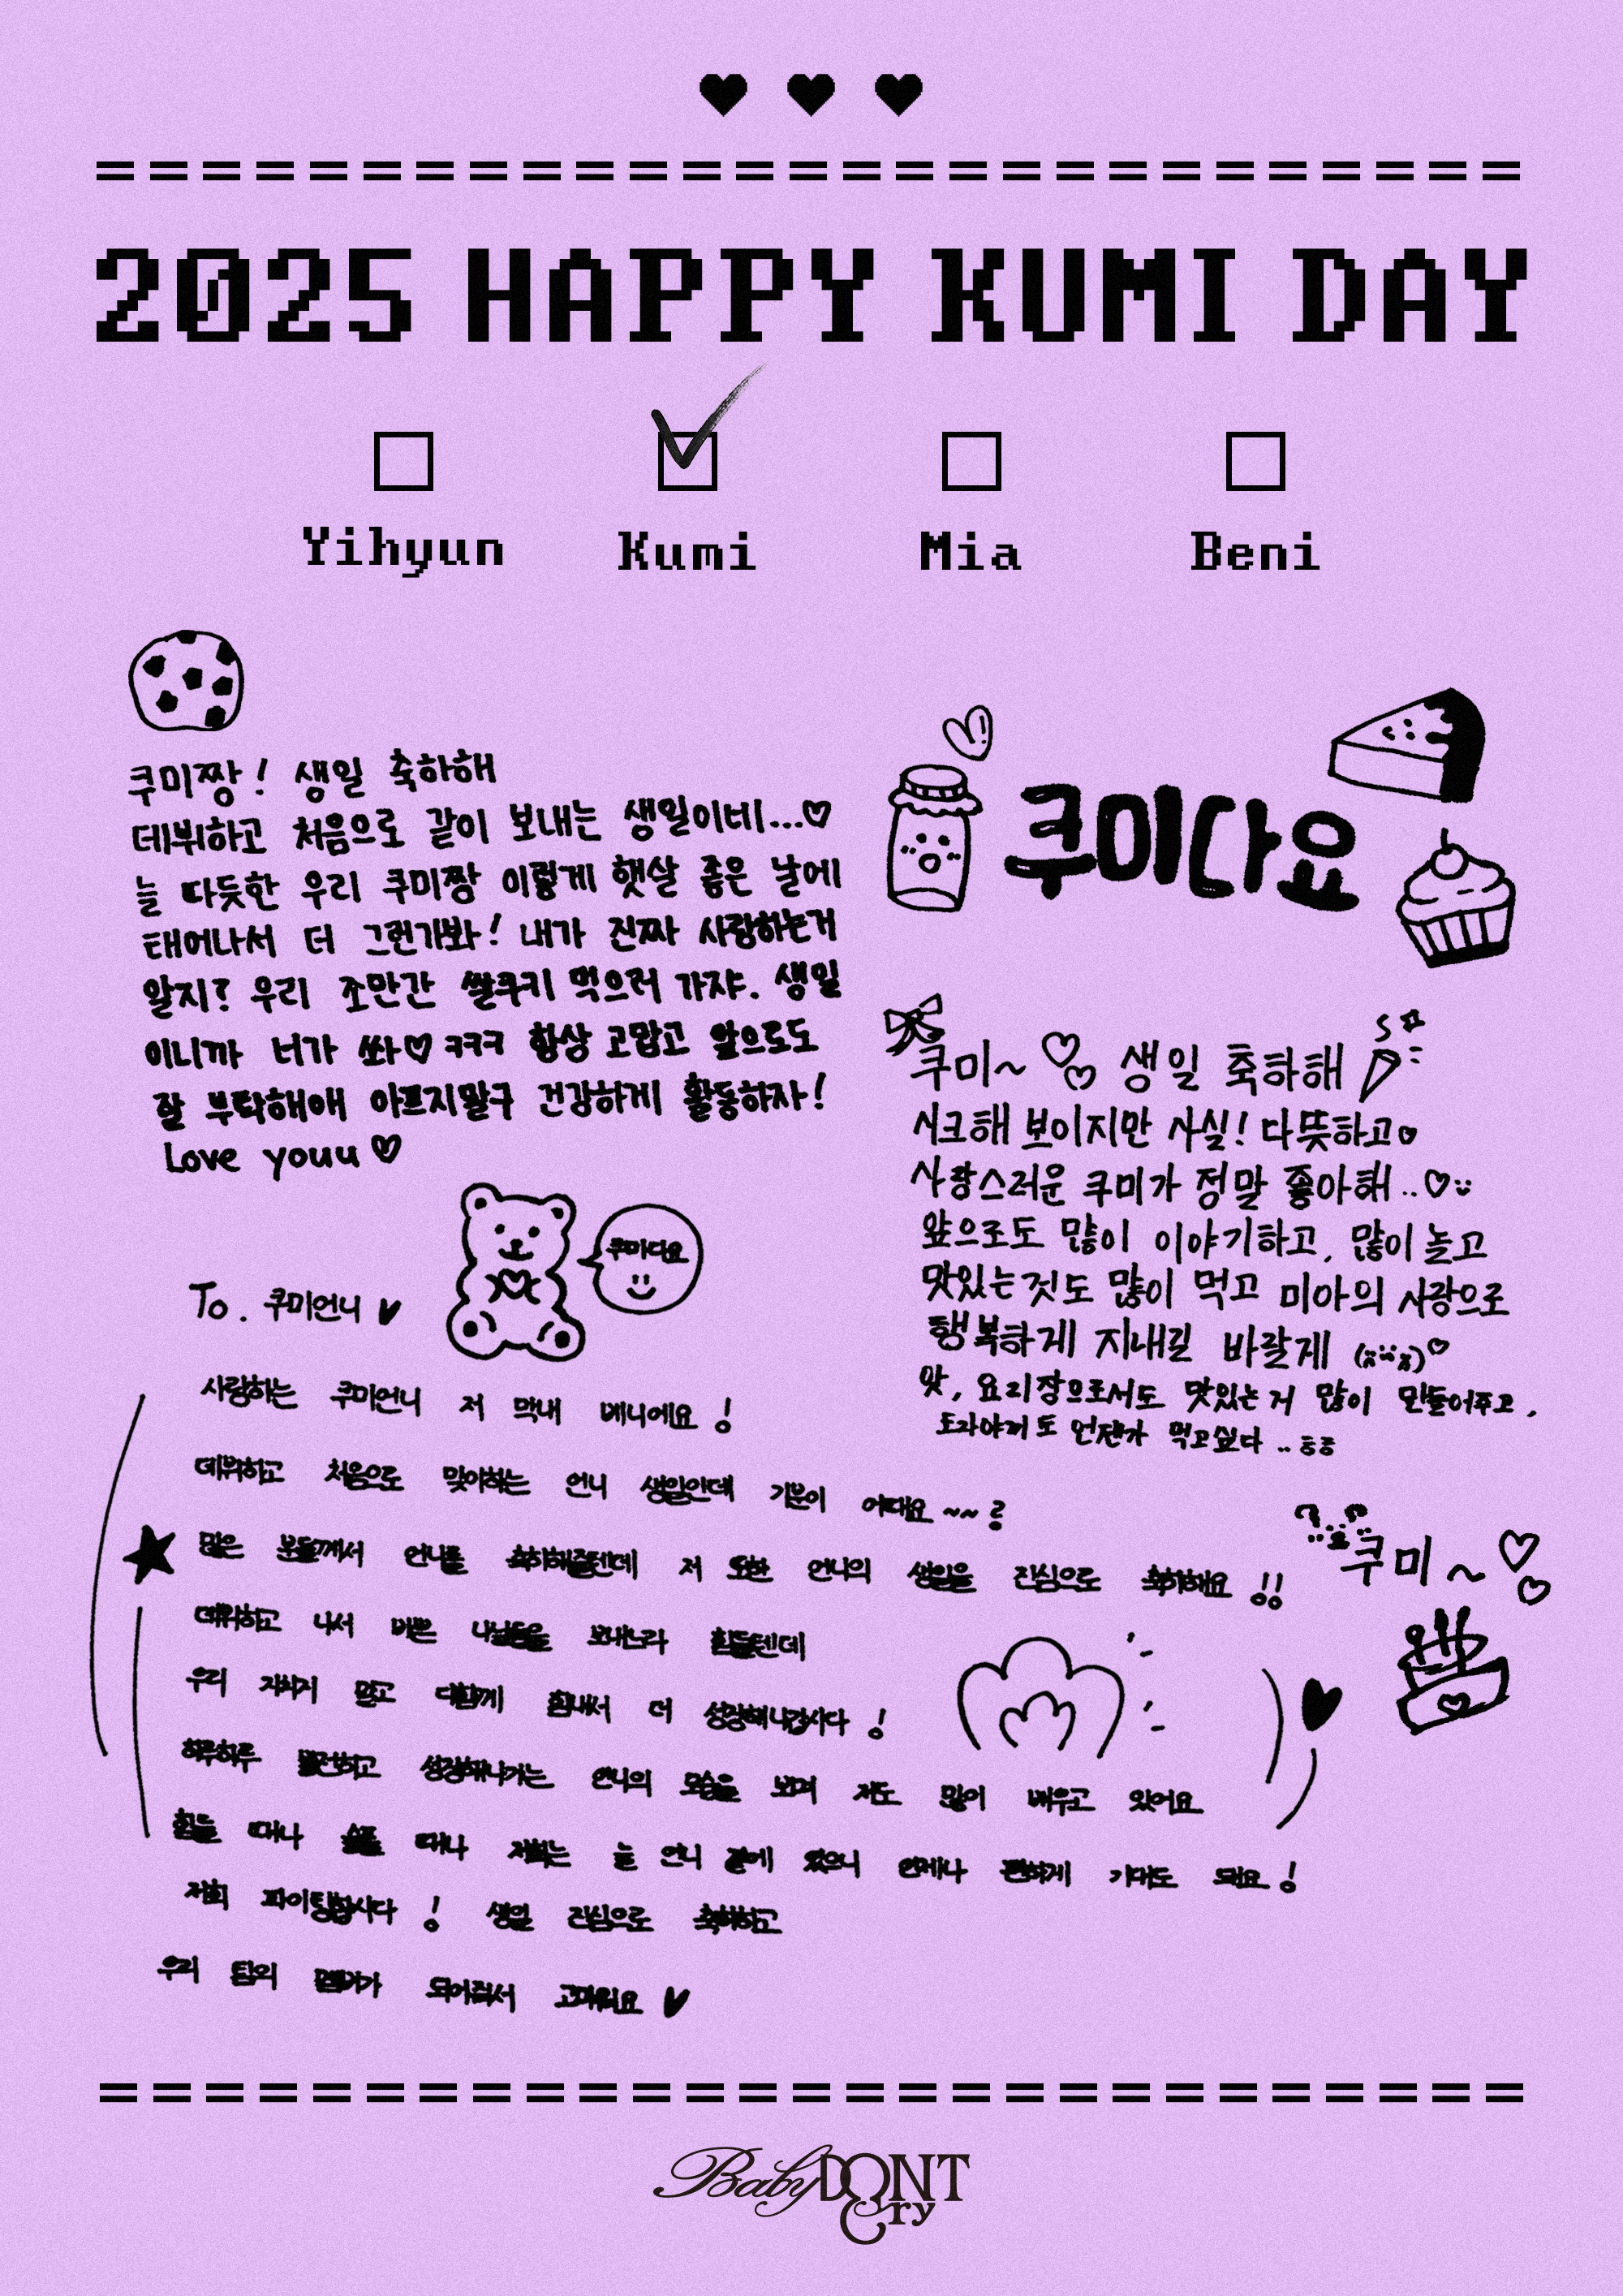 2025 HAPPY KUMI DAY
Yihyun
Kumi
Mia
Beni
쿠미짱! 생일 축하해
데뷔하고 처음으로 같이 보내는 생일이네...♡
늘 따듯한 우리 쿠미짱 이렇게 햇살 좋은 날에
태어나서 더 그런가봐! 내가 진짜 사랑하는거
알지? 우리 조만간 쌀쿠키 먹으러 가쟈. 생일
이니까 너가 쏴♡ ㅋㅋㅋ 항상 고맙고 앞으로도
잘 부탁해애 아프지말구 건강하게 활동하자!
Love youu ♡
쿠미다요
쿠미~ ♡♡ 생일 축하해
시크해 보이지만 사실! 다뜻하고♡
사랑스러운 쿠미가 정말 좋아해..♡
앞으로도 많이 이야기하고, 많이 놀고
맛있는것도 많이 먹고 미아의 사랑으로
행복하게 지내길 바랄게
앗, 요리장으로서도 맛있는 거 많이 만들어주고,
도라야끼도 언젠가 먹고싶다 ..ㅎㅎ
쿠미~ ♡♡
쿠미다요
To. 쿠미언니 ♥
사랑하는 쿠미언니 저 막내 베니에요!
데뷔하고 처음으로 맞이하는 언니 생일인데 기분이 어때요~~?
많은 분들께서 언니를 축하해줄텐데 저 또한 언니의 생일을 진심으로 축하해요!!
데뷔하고 나서 바쁜 나날들을 보내느라 힘들텐데
우리 지치지 말고 다함께 힘내서 더 성장해나갑시다!
하루하루 발전하고 성장해나가는 언니의 모습을 보며 저도 많이 배우고 있어요
힘들 때나 슬플 때나 저희는 늘 언니 곁에 있으니 언제나 편하게 기대도 돼요!
저희 파이팅합시다! 생일 진심으로 축하하고
우리 팀의 멤버가 되어줘서 고마워요 ♥
Baby DONT Cry